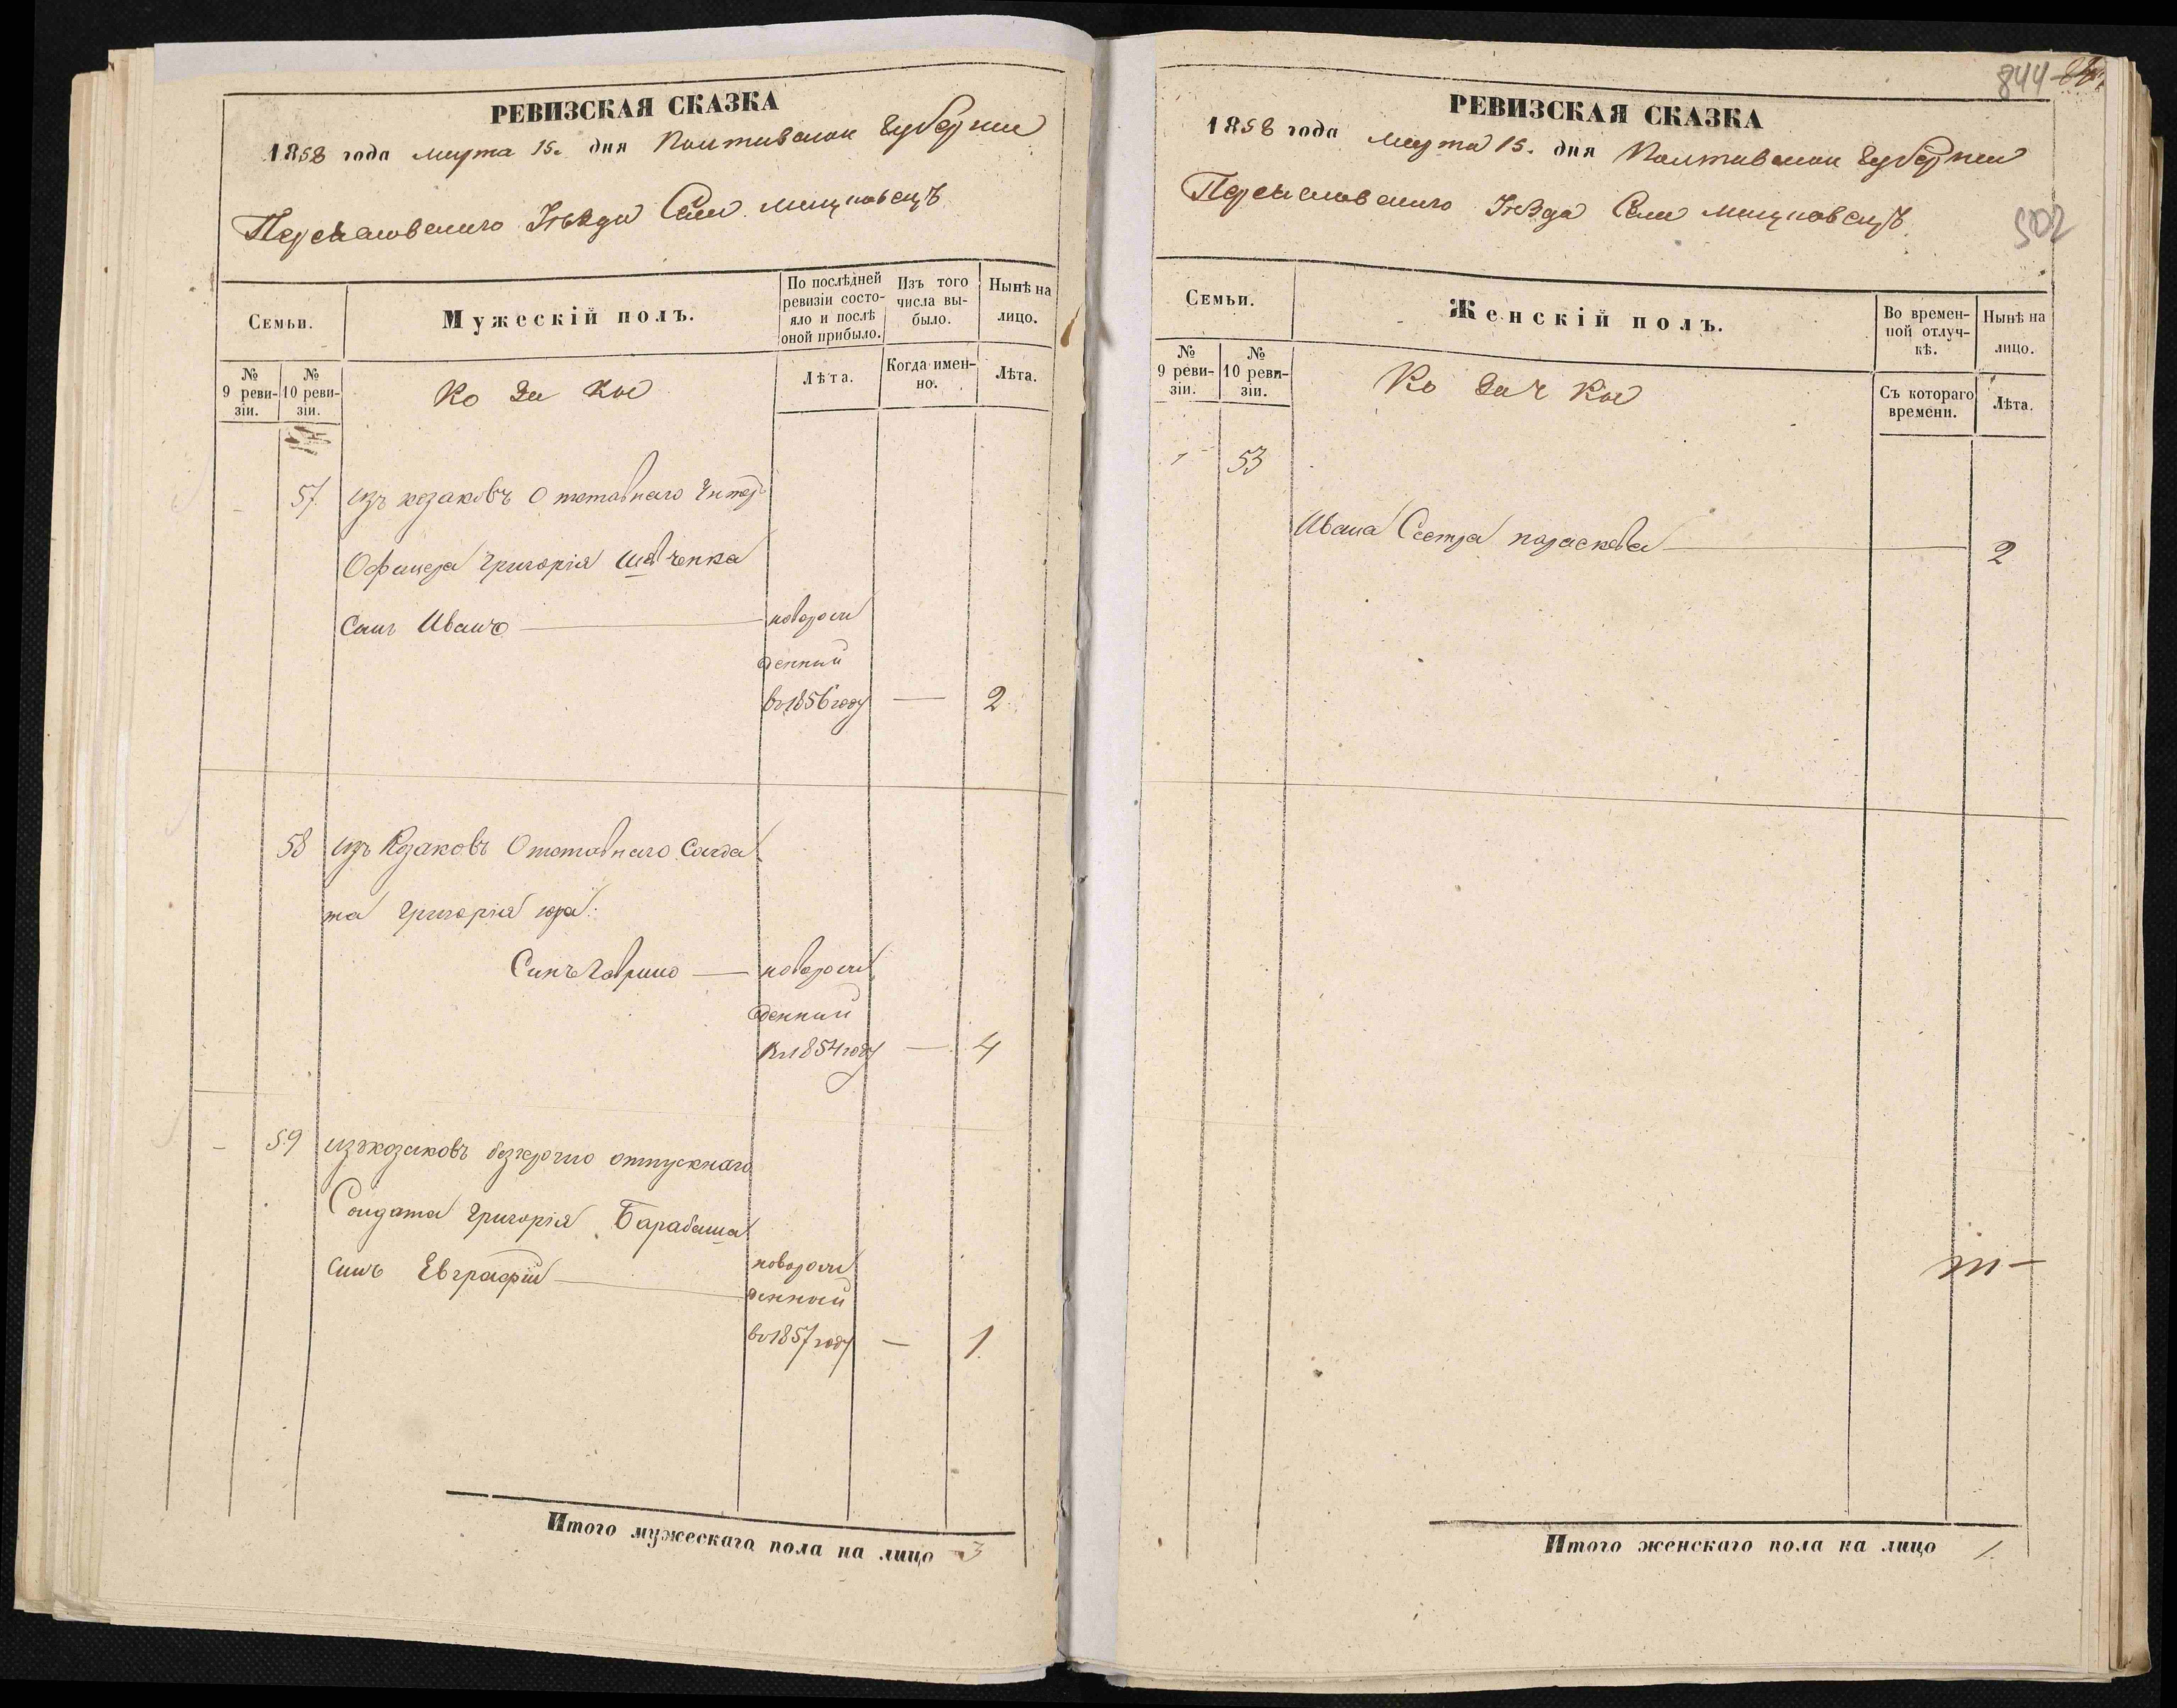 РЕВИЗСКАЯ СКАЗКА
1858 года марта 15. дня Полтавской Губернии
Переяславскаго Уѣзда Села
Семьи.
Мужескій полъ.
По послѣдней ревизіи состояло и послѣ оной прибыло.
Изъ того числа выбыло.
Нынѣ на лицо.
№ 9 ревизіи.
№ 10 ревизіи.
Козаки
Лѣта.
Когда именно.
Лѣта.
57. изъ козаковъ Отставнаго Унтеръ
Офицера Григорія Шевченка
Сынъ Иванъ — новорож
денный
въ 1856 году — 2
58 изъ Козаковъ Отставнаго Солда
та Григорія
Сынъ Гаврило — новорож
денный
въ 1854 году — 4
- 59 изъ козаковъ безсрочно отпускнаго
Солдата Григорія Барабаша
сынъ Евграфій — новорож
денный
въ 1857 году — 1
Итого мужескаго пола на лицо 3
844
РЕВИЗСКАЯ СКАЗКА
1858 года марта 15. дня Полтавской Губернии
Переяславскаго Уѣзда Села
502
Семьи.
Женскій полъ.
Во временной отлучкѣ.
Нынѣ на лицо.
№ 9 ревизіи.
№ 10 ревизіи.
Козачки
Съ котораго времени.
Лѣта.
53
Ивана Сестра параскева — 2
Итого женскаго пола на лицо 1.